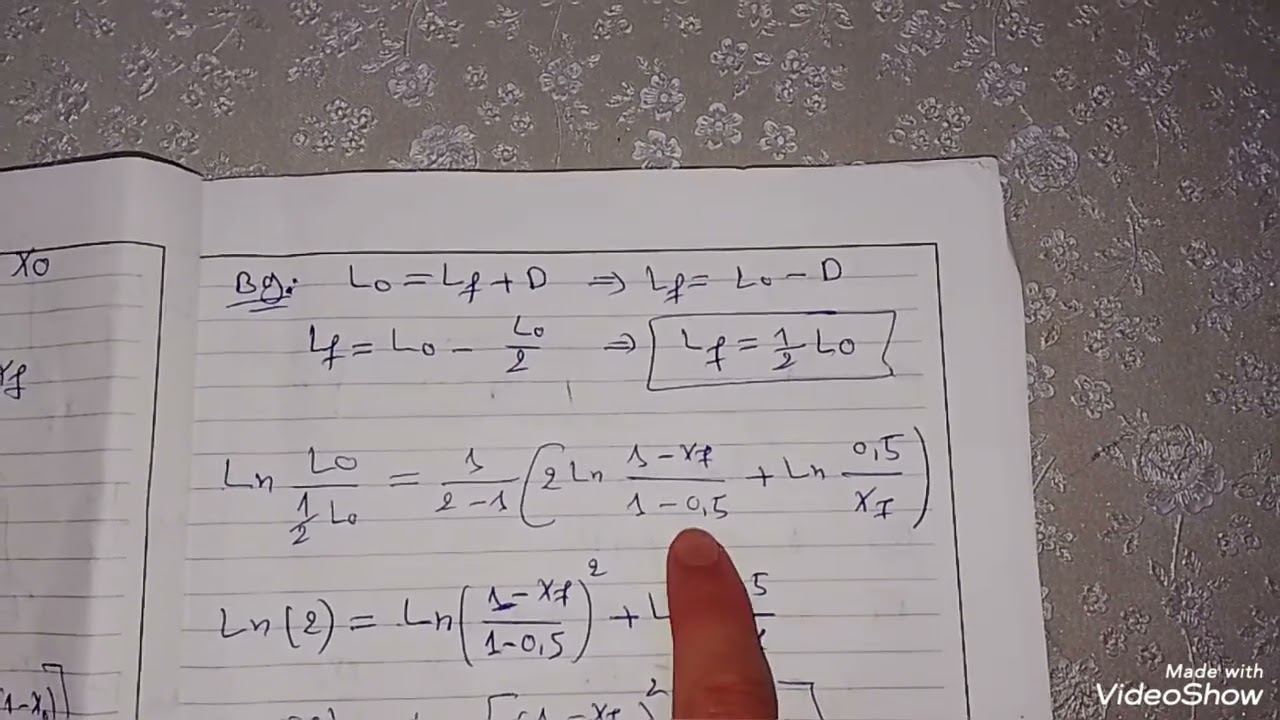 X0
xf
Bg: L0 = Lf + D ⇒ Lf = L0 − D
Lf = L0 − L0/2 ⇒ Lf = 1/2 L0
Ln L0/(1/2 L0) = 1/(2−1) (2 Ln (1−xf)/(1−0,5) + Ln 0,5/xf)
Ln(2) = Ln((1−xf)/(1−0,5))² +
1−x0)]
[(1−xf)²
Made with
VideoShow